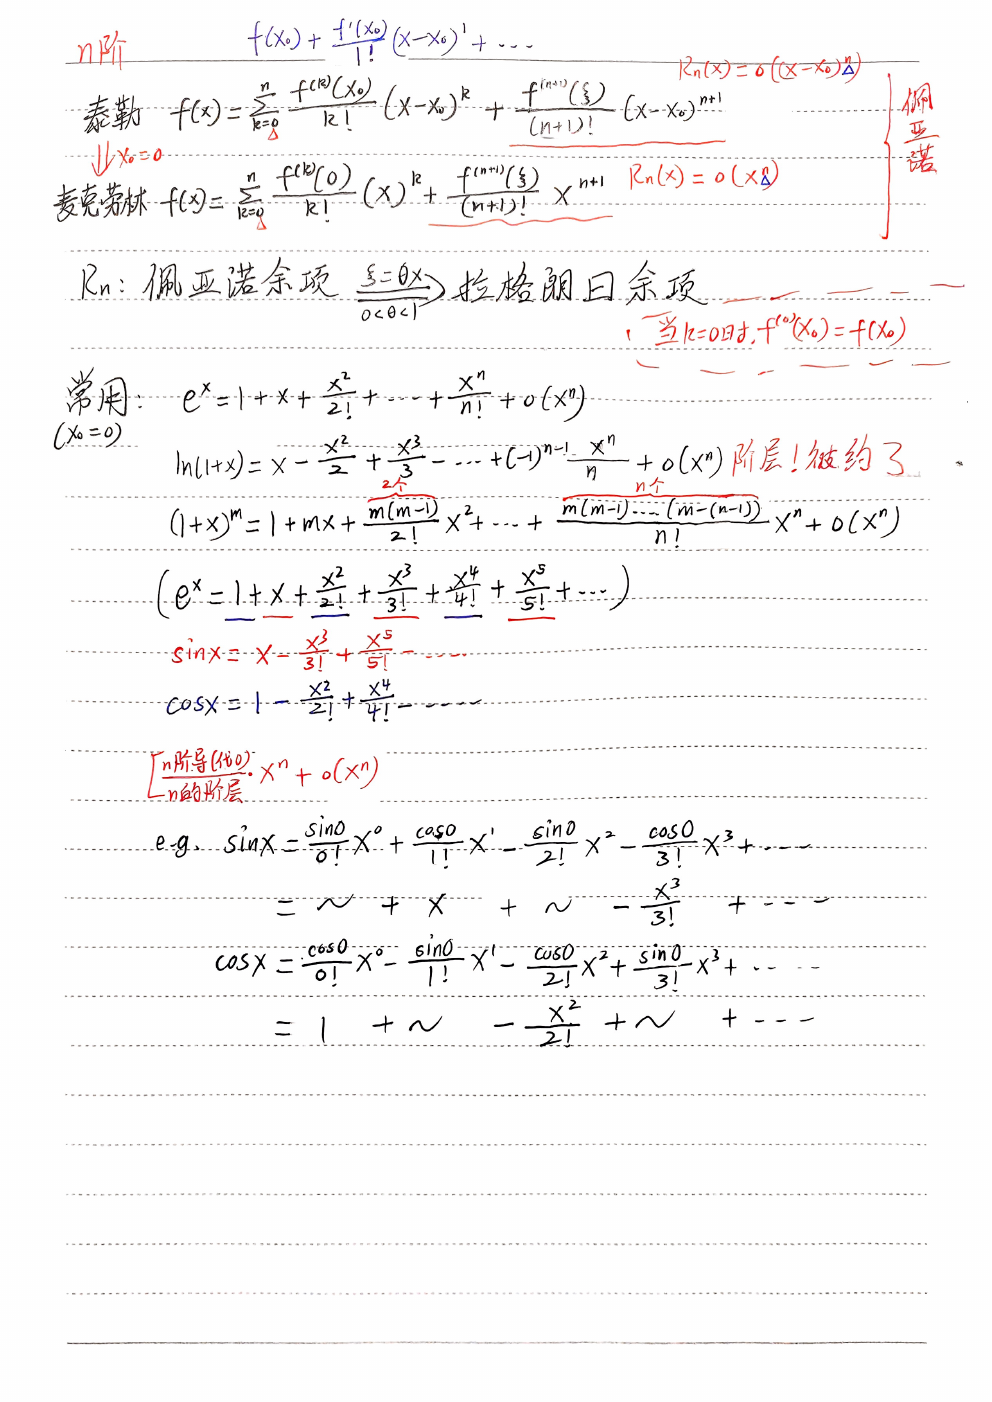 n阶 f(x₀) + f'(x₀)/1! (x-x₀)¹ + ···
Rn(x) = o((x-x₀)ⁿ)
泰勒 f(x) = ∑_{k=0}^{n} f^{(k)}(x₀)/k! (x-x₀)^k + f^{(n+1)}(ξ)/(n+1)! (x-x₀)^{n+1}
佩亚诺
⇓ x₀=0
麦克劳林 f(x) = ∑_{k=0}^{n} f^{(k)}(0)/k! (x)^k + f^{(n+1)}(ξ)/(n+1)! x^{n+1} Rn(x) = o(xⁿ)
Rn: 佩亚诺余项 ξ=θx 0<θ<1 → 拉格朗日余项
当k=0时, f^{(0)}(x₀) = f(x₀)
常用: e^x = 1 + x + x²/2! + ··· + xⁿ/n! + o(xⁿ)
(x₀=0)
ln(1+x) = x - x²/2 + x³/3 - ··· + (-1)^{n-1} xⁿ/n + o(xⁿ) 阶层!被约了
2个 n个
(1+x)^m = 1 + mx + m(m-1)/2! x² + ··· + m(m-1)····(m-(n-1))/n! xⁿ + o(xⁿ)
(e^x = 1 + x + x²/2! + x³/3! + x⁴/4! + x⁵/5! + ···)
sinx = x - x³/3! + x⁵/5! - ····
cosx = 1 - x²/2! + x⁴/4! - ·····
[n阶导(代0)/n的阶层 · xⁿ + o(xⁿ)
e.g. sinx = sin0/0! x⁰ + cos0/1! x¹ - sin0/2! x² - cos0/3! x³ + ···
= ~ + x + ~ - x³/3! + ···
cosx = cos0/0! x⁰ - sin0/1! x¹ - cos0/2! x² + sin0/3! x³ + ····
= 1 + ~ - x²/2! + ~ + ···